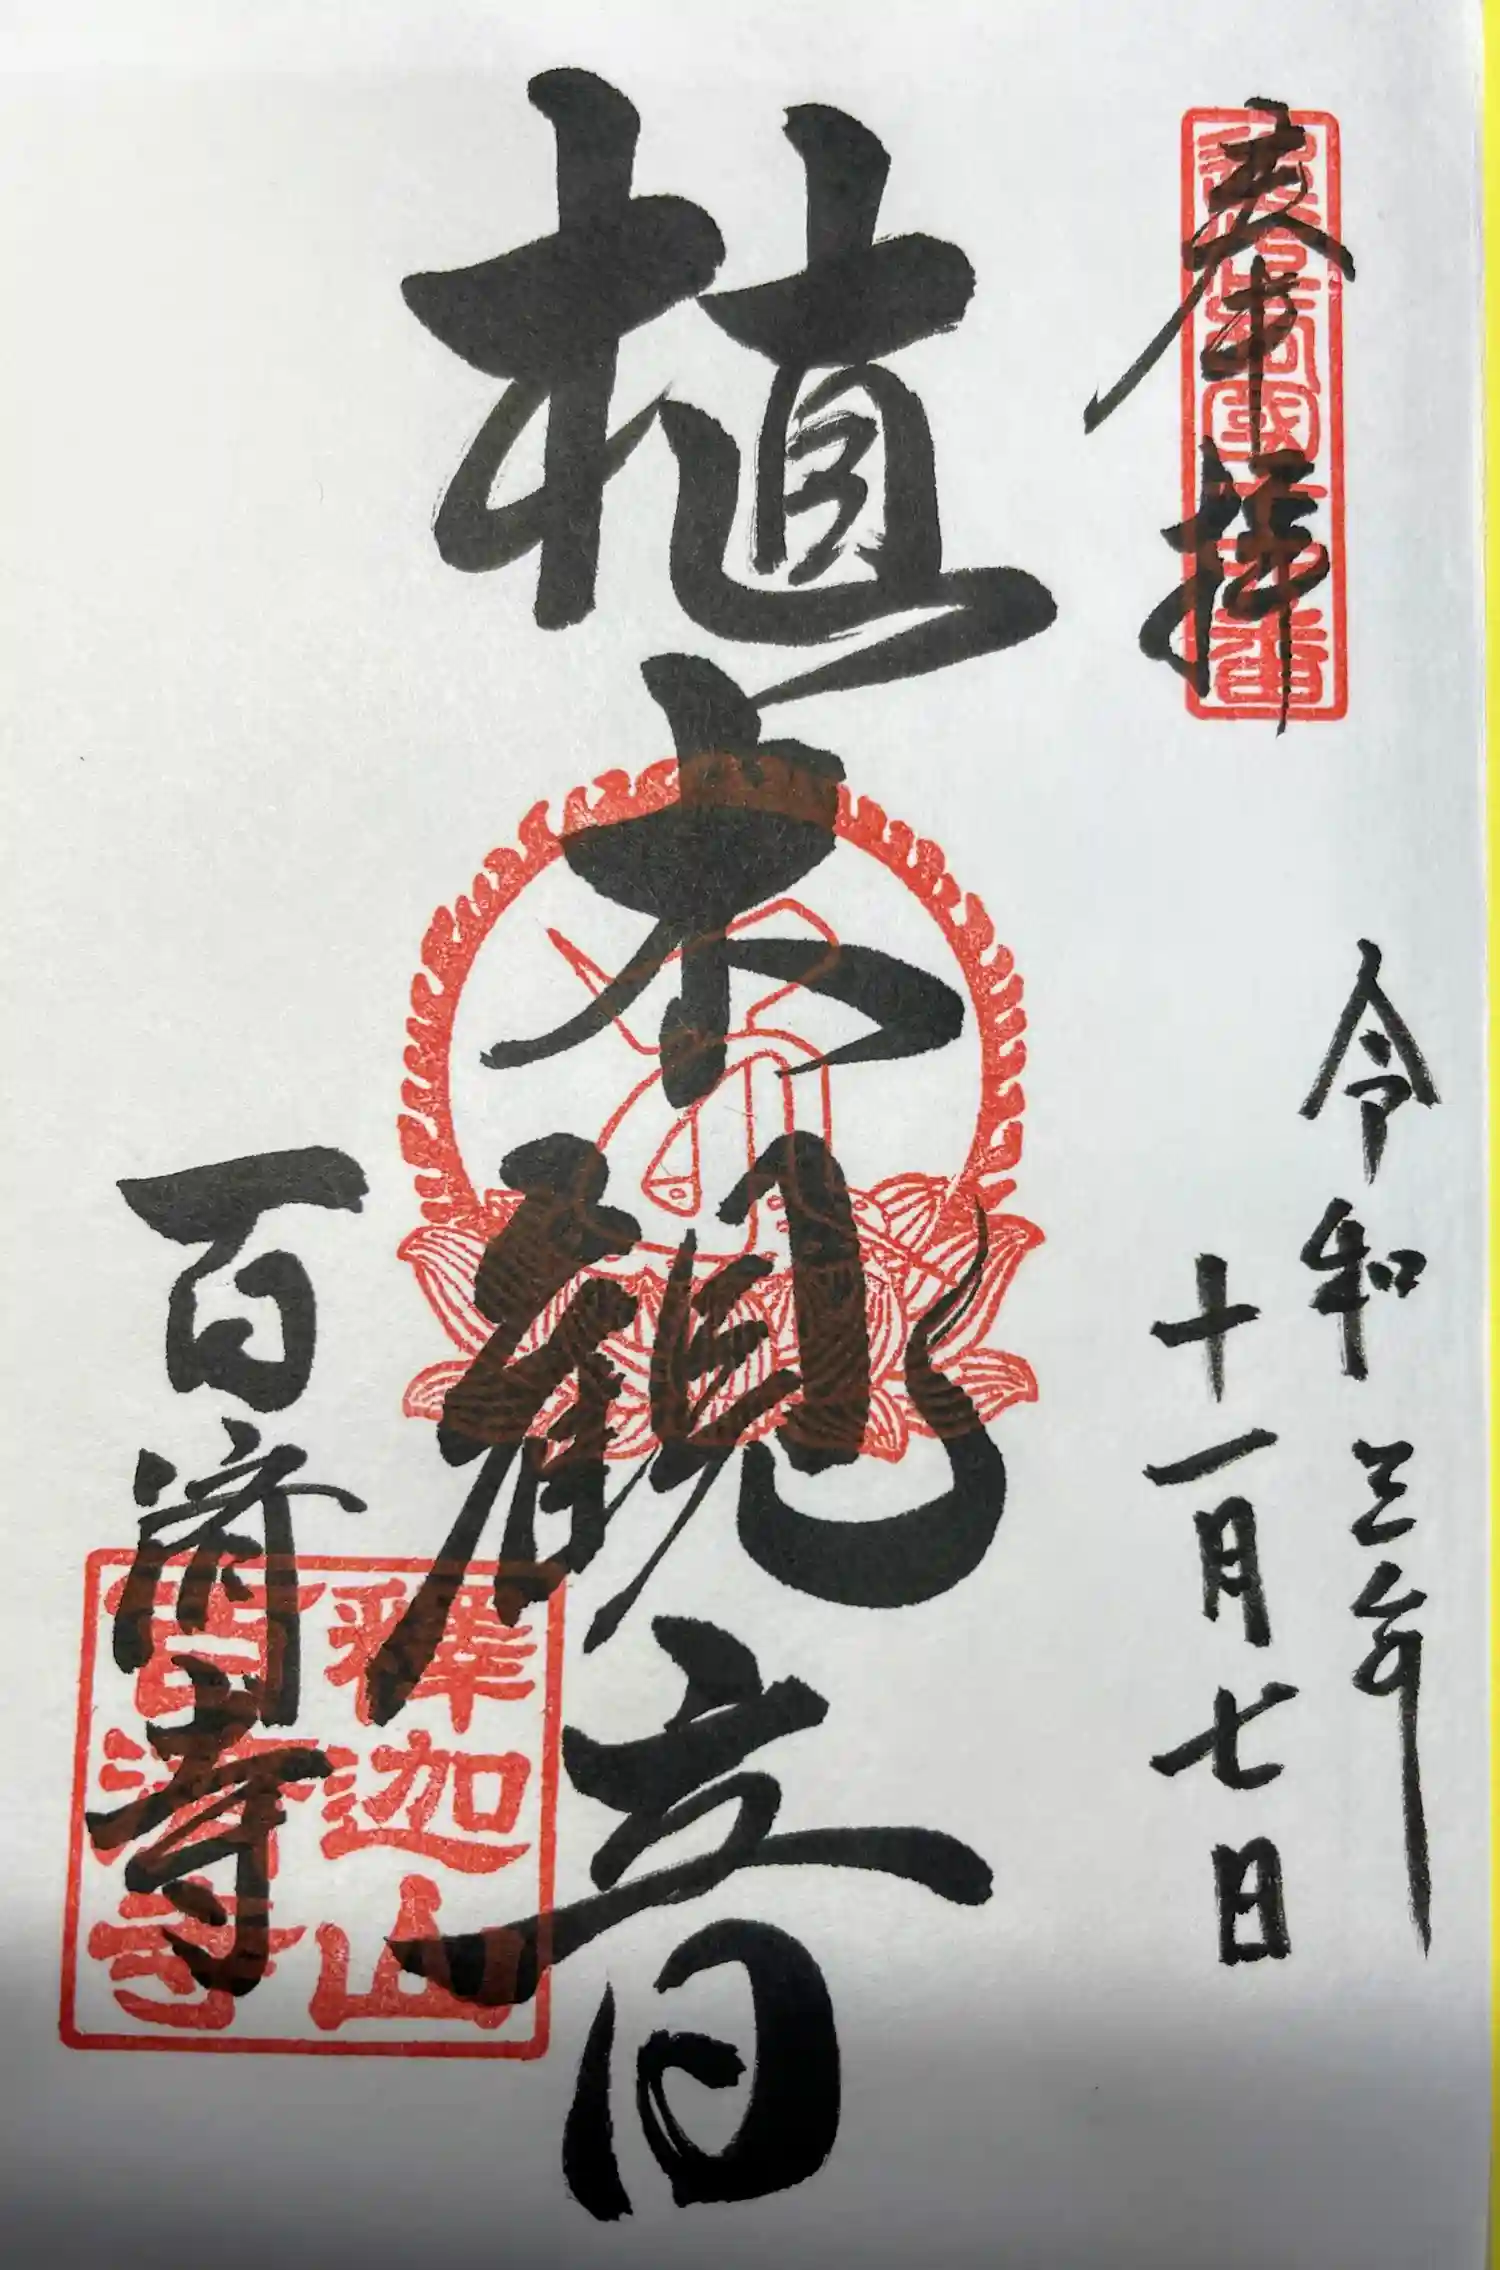 奉拝
令和三年
十一月七日
植木観音
百済寺
釋迦山
百濟寺